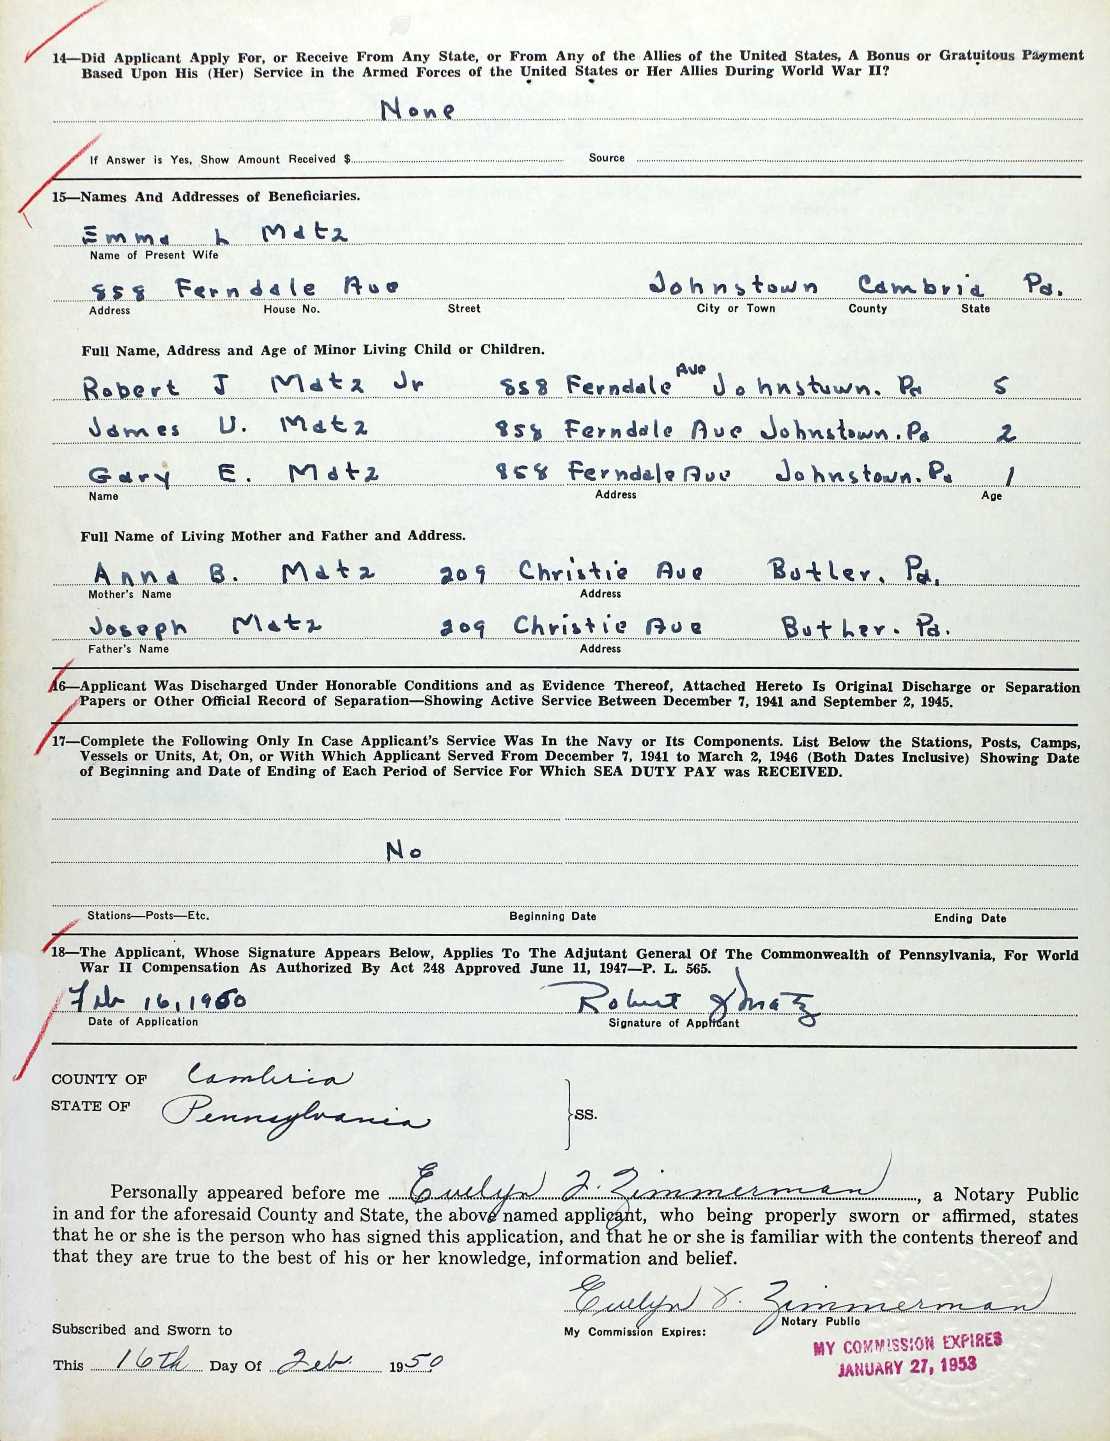 14—Did Applicant Apply For, or Receive From Any State, or From Any of the Allies of the United States, A Bonus or Gratuitous Payment
Based Upon His (Her) Service in the Armed Forces of the United States or Her Allies During World War II?
None
If Answer is Yes, Show Amount Received $ Source
15—Names And Addresses of Beneficiaries.
Emma L Matz
Name of Present Wife
858 Ferndale Ave Johnstown Cambria Pa.
Address House No. Street City or Town County State
Full Name, Address and Age of Minor Living Child or Children.
Robert J Matz Jr 858 Ferndale Ave Johnstown. Pa 5
James V. Matz 858 Ferndale Ave Johnstown. Pa 2
Gary E. Matz 858 Ferndale Ave Johnstown. Pa 1
Name Address Age
Full Name of Living Mother and Father and Address.
Anna B. Matz 209 Christie Ave Butler. Pa.
Mother's Name Address
Joseph Matz 209 Christie Ave Butler. Pa.
Father's Name Address
16—Applicant Was Discharged Under Honorable Conditions and as Evidence Thereof, Attached Hereto Is Original Discharge or Separation
Papers or Other Official Record of Separation—Showing Active Service Between December 7, 1941 and September 2, 1945.
17—Complete the Following Only In Case Applicant's Service Was In the Navy or Its Components. List Below the Stations, Posts, Camps,
Vessels or Units, At, On, or With Which Applicant Served From December 7, 1941 to March 2, 1946 (Both Dates Inclusive) Showing Date
of Beginning and Date of Ending of Each Period of Service For Which SEA DUTY PAY was RECEIVED.
No
Stations—Posts—Etc. Beginning Date Ending Date
18—The Applicant, Whose Signature Appears Below, Applies To The Adjutant General Of The Commonwealth of Pennsylvania, For World
War II Compensation As Authorized By Act 248 Approved June 11, 1947—P. L. 565.
Feb 16, 1950 Robert J Matz
Date of Application Signature of Applicant
COUNTY OF Cambria
STATE OF Pennsylvania SS.
Personally appeared before me Evelyn F. Zimmerman, a Notary Public
in and for the aforesaid County and State, the above named applicant, who being properly sworn or affirmed, states
that he or she is the person who has signed this application, and that he or she is familiar with the contents thereof and
that they are true to the best of his or her knowledge, information and belief.
Evelyn F. Zimmerman
Subscribed and Sworn to My Commission Expires: Notary Public
This 16th Day Of Feb 1950 MY COMMISSION EXPIRES
JANUARY 27, 1953